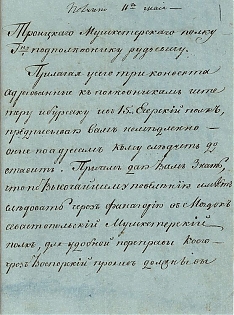 Троицкаго Мушкетерскаго полку
Гну подполковнику Рудьевичу.
Прилагая у сего три конверта
адресованные къ полковникамъ
и въ 15. Егерскiй полкъ,
предписываю вамъ немедленно
оные по адресамъ кому слѣдуетъ до
ставить. Причемъ даю вамъ знать,
что по Высочайшему повелѣнiю имѣетъ
слѣдовать чрезъ Фанагорiю въ
Севастопольскiй Мушкетерскiй
полкъ, для удобной переправы коего
чрезъ Воспорскiй проливъ должны вы